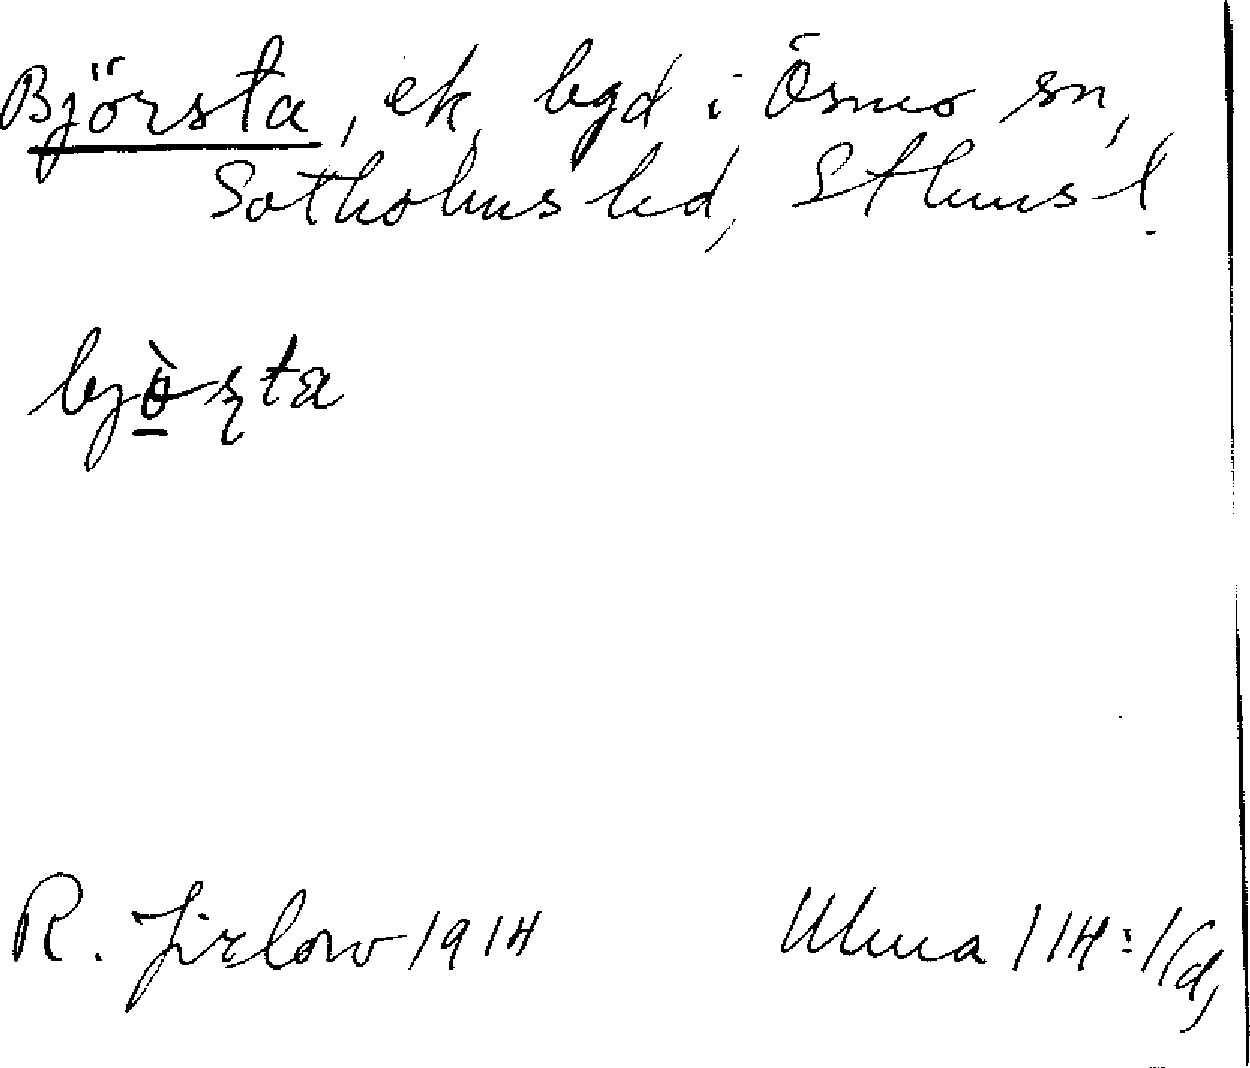 Björsta, ek, bgd i Ösmo sn,
Sotholms hd, Sthms l.
bjö̀ʂta
R. Jirlow 1914 Ulma 114:1